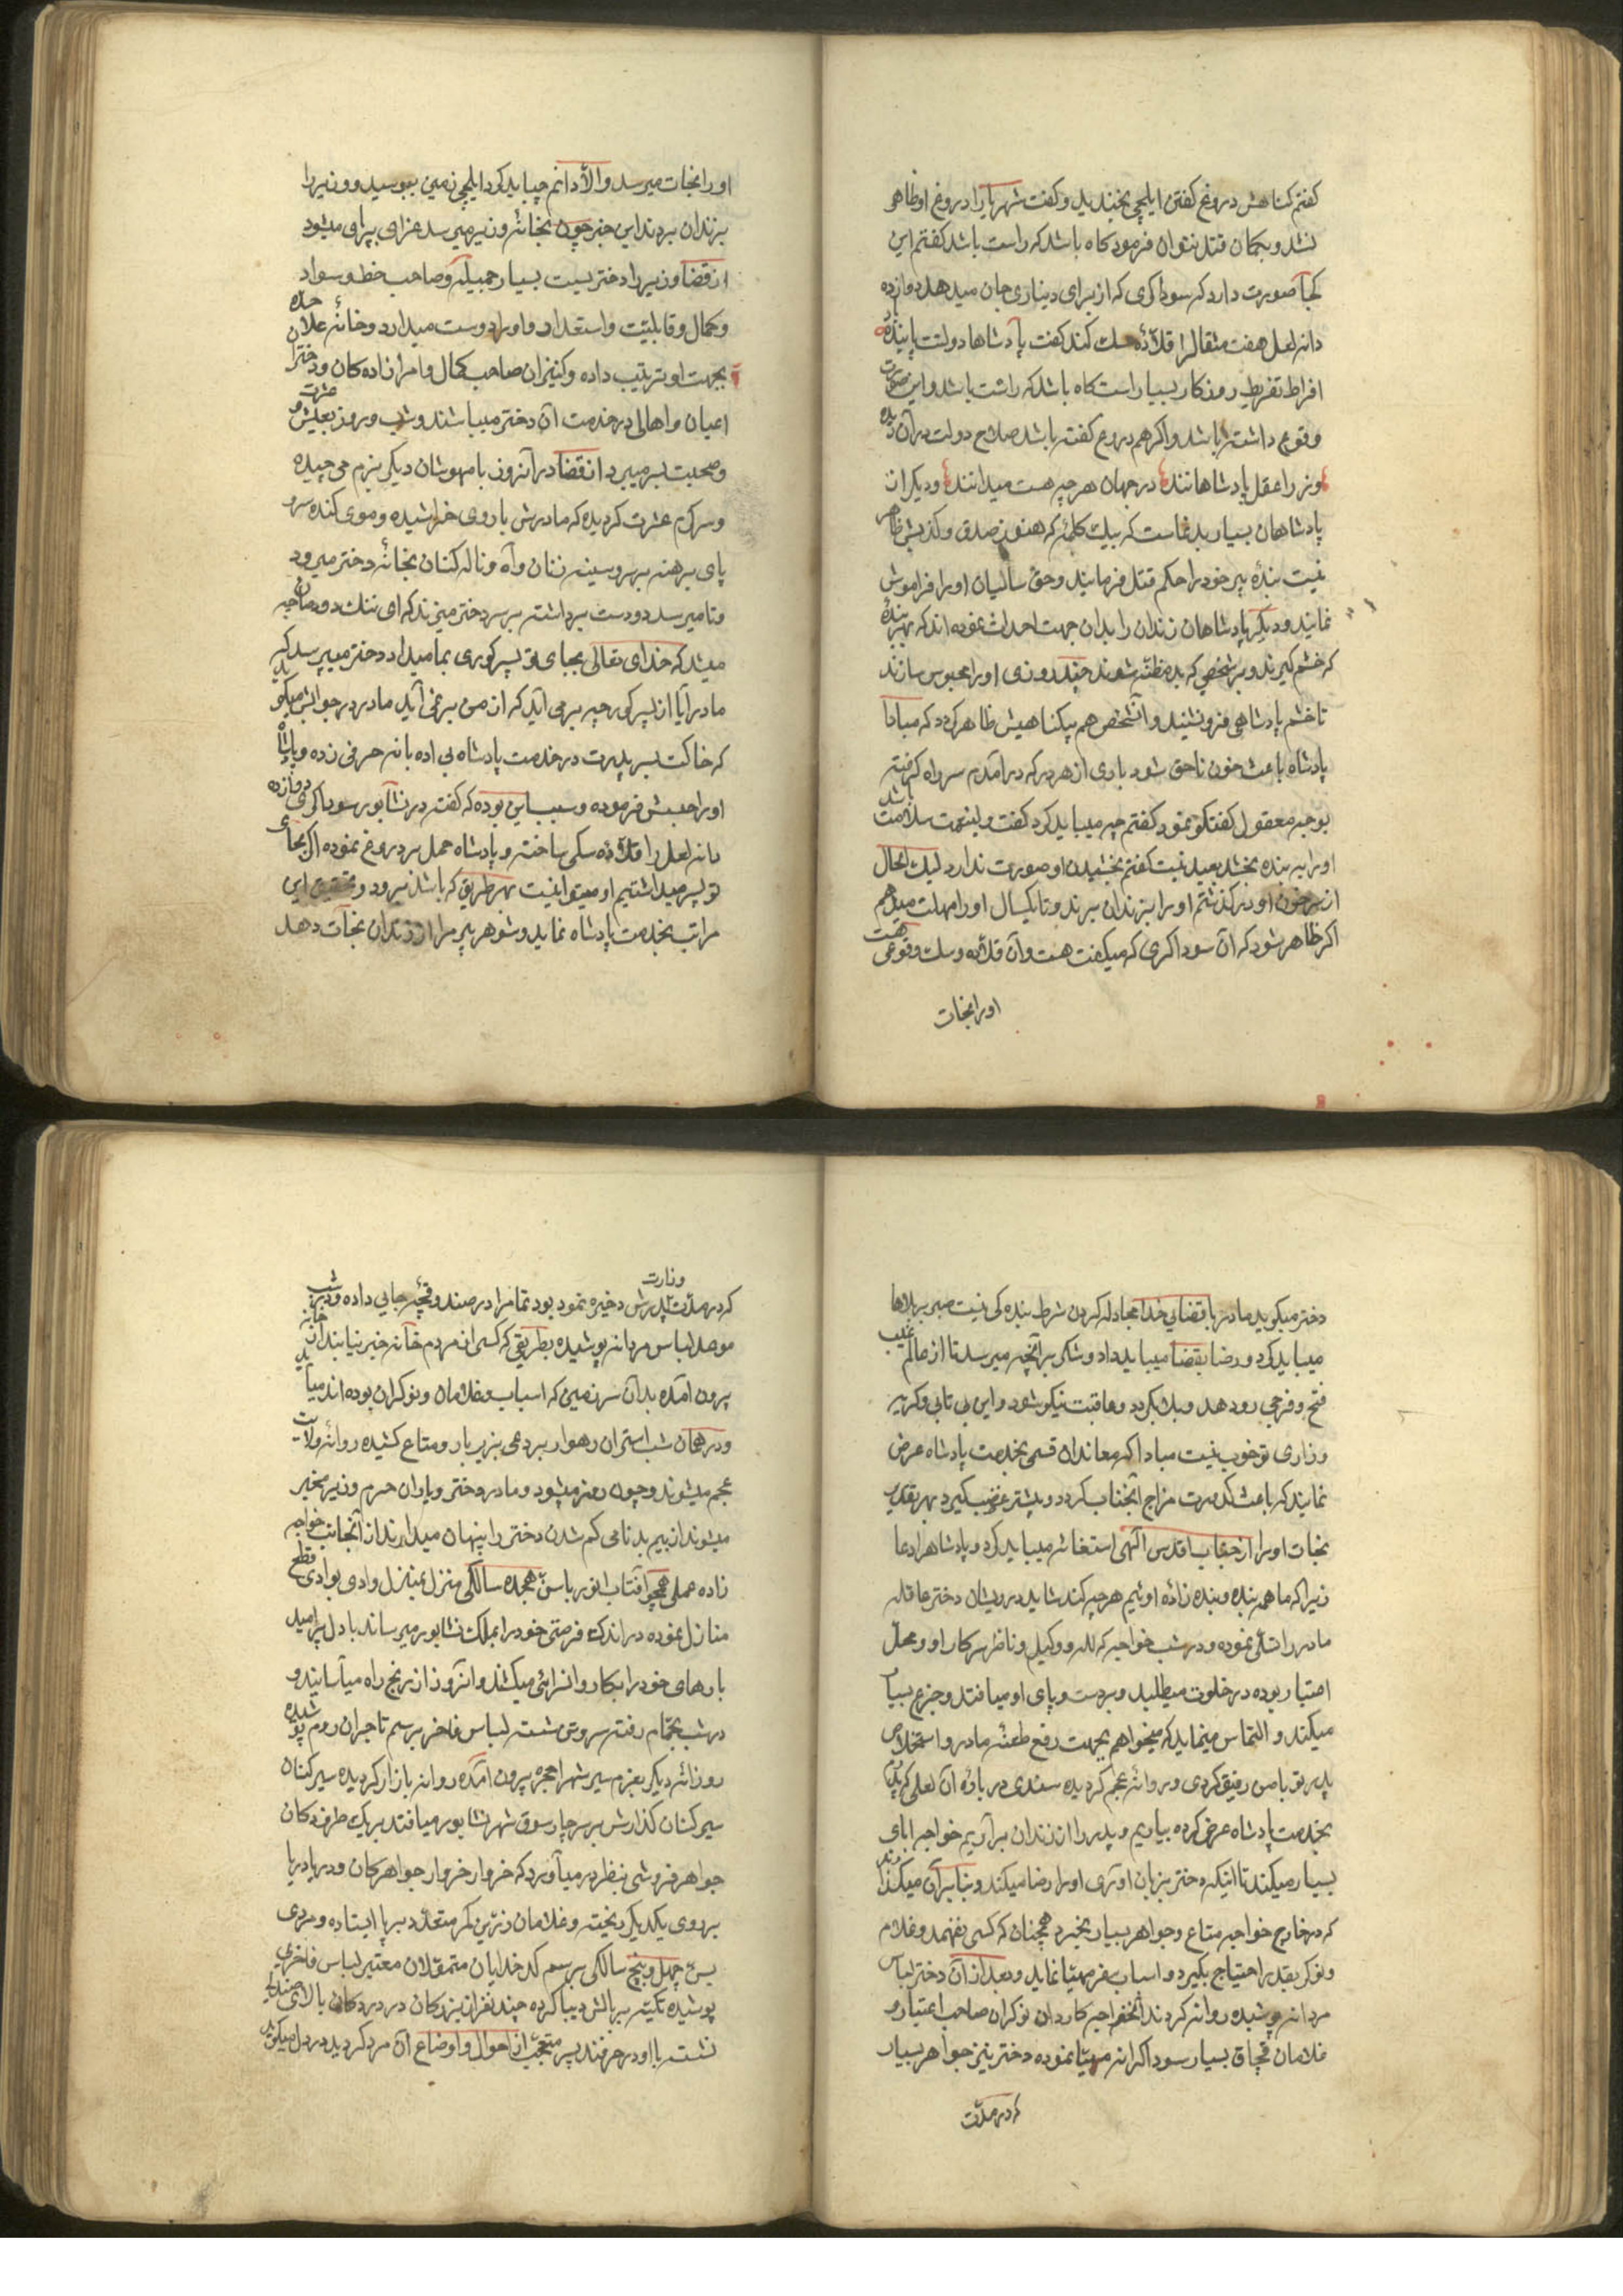 کفتم کناهش دروغ کفتن ایلچی بخندید و کفت شهریارا دروغ او ظاهر
نشد و بکمان قتل نتوان فرمود کاه باشد که راست باشد کفتم این
کجا صورت دارد که سوداکری که از برای دیناری جان میدهد دوازده
دانه لعل هفت مثقالرا قلاده سک کند کفت پادشاها دولتت پاینده باد
افراط تفریط روزکار بسیار است کاه باشد که راست باشد و این صورت
وقوع داشته باشد و اکر هم دروغ کفته باشد صلاح دولت در آن دیده
وزرا عقل پادشاهانند در جهان هر چه هست میدانند و دیکر از
پادشاهان بسیار بدنماست که بیک کلمه که هنوز صدق و کذبش ظاهر
نیست بندهٔ پیر خود را حکم قتل فرمایند و حق سالیان او را فراموش
نمایند و دیکر پادشاهان زندان را بدان جهت احداث نموده اند که بهر بنده
که خشم کیرند و بر شخصی که بد مظنه شوند چند روزی او را محبوس سازند
تا خشم پادشاهی فرو نشیند و آنشخص هم بیکناهیش ظاهر کردد که مبادا
پادشاه باعث خون ناحق شود باری از هر در که درآمدم سر راه کرفته
بوجه معقول کفتکو نمود کفتم چه میباید کرد کفت ولینعمت سلامت باشد
او را به بنده بخشد بعید نیست کفتم بخشیدن او صورت ندارد لیک الحال
از سر خون او در کذشتم او را بزندان برند و تا یکسال او را مهلت میدهم
اکر ظاهر شود که آن سوداکری که میکفت هست و آن قلاده و سک وقوعی هست
او را نجات
او را نجات میرسد والا دانم چه باید کرد ایلچی زمین ببوسید و وزیر را
بزندان بردند این خبر چون بخانهٔ وزیر میرسد عزای برپای میشود
از قضا وزیر را دختریست بسیار جمیله و صاحب خط و سواد
و کمال و قابلیت و استعداد و او را دوست میدارد و خانهٔ علاحده
بجهت او ترتیب داده و کنیزان صاحب کمال و امرا زاده کان و دخترا
اعیان و اهالی در خدمت آن دختر میباشند و شب و روز بعیش و عشرت
و صحبت بسر میبرد از قضا در آنروز با مهوشان دیکر بزم می چیده
و سرکرم عشرت کردیده که مادرش با روی خراشیده و موی کنده سر و
پای برهنه بر سر و سینه زنان و آه و ناله کنان بخانهٔ دختر میرود
و تا میرسد دو دست برداشته بر سر دختر میزند که ای ننک دودمان چه
میشد که خدای تعالی بجای تو پسر کوری بما میداد دختر میپرسد که
مادر آیا از پسر کور چه بر می آید که از من بر نمی آید مادر در جوابش میکوید
که خاکت بسر پدرت در خدمت پادشاه بی ادبانه حرفی زده و پادشاه
او را حبس فرموده و سبب این بوده که کفته در نشابور سوداکری دوازده
دانه لعل را قلاده سکی ساخته و پادشاه حمل بر دروغ نموده اکر بجای
تو پسر میداشتیم او میتوانست بهر طریق که باشد برود و تحقیق این
مراتب بخدمت پادشاه نماید و شوهر پیر مرا از زندان نجات دهد
دختر میکوید مادر با قضای خدا مجادله کردن شرط بنده کی نیست صبر بر بلاها
میباید کرد و رضا بقضا میباید داد و شکر بر آنچه میرسد تا از عالم غیب
فتح و فرجی رو دهد و بلا بکردد و عاقبت نیکو شود و این بی تابی و کریه
و زاری تو خوب نیست مبادا که معاندان قسمی بخدمت پادشاه عرض
نمایند که باعث کدورت مزاج آنجناب کردد و بیشتر غضب کیرد بهر تقدیر
نجات او را از جناب اقدس الهی استغاثه میباید کرد و پادشاه را دعا
زیرا که ما همه بنده و بنده زاده اوئیم هر چه کند شاید درویشان دختر عاقله
مادر را تسلی نموده و در شب خواجه که لله و وکیل و ناظر سرکار او و محل
اعتبار بوده در خلوت میطلبد و بر دست و پای او میافتد و جزع بسیار
میکند و التماس مینماید که میخواهم بجهت رفع طعنهٔ مادر و استخلاص
پدر تو با من رفیق کردی و روانهٔ عجم کردیده سندی در بارهٔ آن لعلی که پدرم
بخدمت پادشاه عرض کرده بیاریم و پدر را از زندان بر آریم خواجه ابای
بسیار میکند تا اینکه دختر بزبان آوری او را رضا میکند و بنا بر آن میکذارند
که در خارج خواجه متاع و جواهر بسیار بخرد همچنان که کسی نفهمد و غلام
و نوکر بقدر احتیاج بکیرد و اسباب سفر مهیا نماید و بعد از آن دختر لباس
مردانه پوشیده روانه کردند آنخواجه کاردان نوکران صاحب اعتبار و
غلامان قبچاق بسیار سوداکرانه مهیا نموده دختر نیز جواهر بسیار
که در مدت
که در مدت وزارت پدرش ذخیره نموده بود تمام را در صندوقچهٔ جابی داده و در شب
موعد لباس مردانه پوشیده بطریقی که کسی از مردم خانه خبر نیابند از خانه
بیرون آمده بدان سرزمین که اسباب و غلامان و نوکران بوده اند میآید
و در همان شب استران رهوار بردعی بزیر بار و متاع کشیده روانهٔ ولایت
عجم میشوند و چون روز میشود و مادر دختر و یاران حرم وزیر مخبر
میشوند از بیم بدنامی کم شدن دختر را پنهان میدارند از آنجانب خواجه
زاده عملی همچو آفتاب انور با سن هجده سالکی منزل بمنزل وادی بوادی قطع
منازل نموده در اندک فرصتی خود را بملک نشابور میرساند با دل پر امید
بارهای خود را بکاروانسرائی میکشند و آنروز از رنج راه میآسایند و
در شب بحمام رفته سر و تن شسته لباس فاخر برسم تاجران روم پوشیده
روزانهٔ دیکر بعزم سیر شهر از حجره بیرون آمده روانه بازار کردیده سیر کنان
سیر کنان کذارش بر سر چار سوق شهر نشابور میافتد بر یک طرف دکان
جواهر فروشی بنظر در میآورد که خروار خروار جواهر کان و دریا دریا
بر روی یکدیکر ریخته و غلامان زرین کمر متعدد بر پا ایستاده و مردی
بسن چهل و پنج سالکی برسم کدخدایان متمولان معتبر لباس فاخری
پوشیده تکیه بر بالش دیبا کرده چند نفر از بزرکان در در دکان بالای صندلی
نشسته با او در حرفند پسر متعجب از احوال و اوضاع آن مرد کردید در دل میکوید